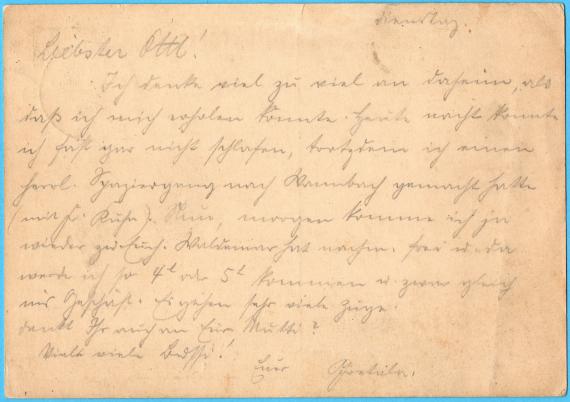 Dienstag.
Liebster Ottl!
Ich denke viel zu viel an daheim, als
daß ich mich erholen könnte. Heute nacht konnte
ich fast gar nicht schlafen, trotzdem ich einen
herrl. Spaziergang nach Wambach gemacht hatte
(mit Fr. Kuhn). Nun, morgen komme ich ja
wieder zu Euch. Waldemar hat nachm. frei u. da
werde ich so 4h oder 5h kommen u. zwar gleich
ins Geschäft. Es gehen sehr viele Züge.
denkt Ihr auch an Eure Mutti?
Viele viele Bussi!
Eure